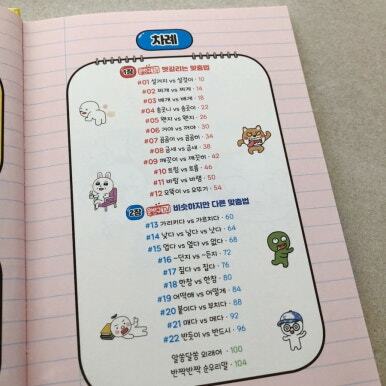 차례
1장 헷갈리는 맞춤법
#01 설거지 vs 설겆이 · 10
#02 찌개 vs 찌게 · 14
#03 베개 vs 배게 · 18
#04 송곳니 vs 송곳이 · 22
#05 왠지 vs 웬지 · 26
#06 거야 vs 꺼야 · 30
#07 곰곰이 vs 곰곰히 · 34
#08 금세 vs 금새 · 38
#09 깨끗이 vs 깨끗히 · 42
#10 트림 vs 트름 · 46
#11 바람 vs 바램 · 50
#12 오뚝이 vs 오뚜기 · 54
2장 비슷하지만 다른 맞춤법
#13 가리키다 vs 가르치다 · 60
#14 낫다 vs 낳다 vs 낮다 · 64
#15 업다 vs 엎다 vs 없다 · 68
#16 ~던지 vs ~든지 · 72
#17 짖다 vs 짓다 · 76
#18 한참 vs 한창 · 80
#19 어떡해 vs 어떻게 · 84
#20 붙이다 vs 부치다 · 88
#21 매다 vs 메다 · 92
#22 반듯이 vs 반드시 · 96
알쏭달쏭 외래어 · 100
반짝반짝 순우리말 · 104